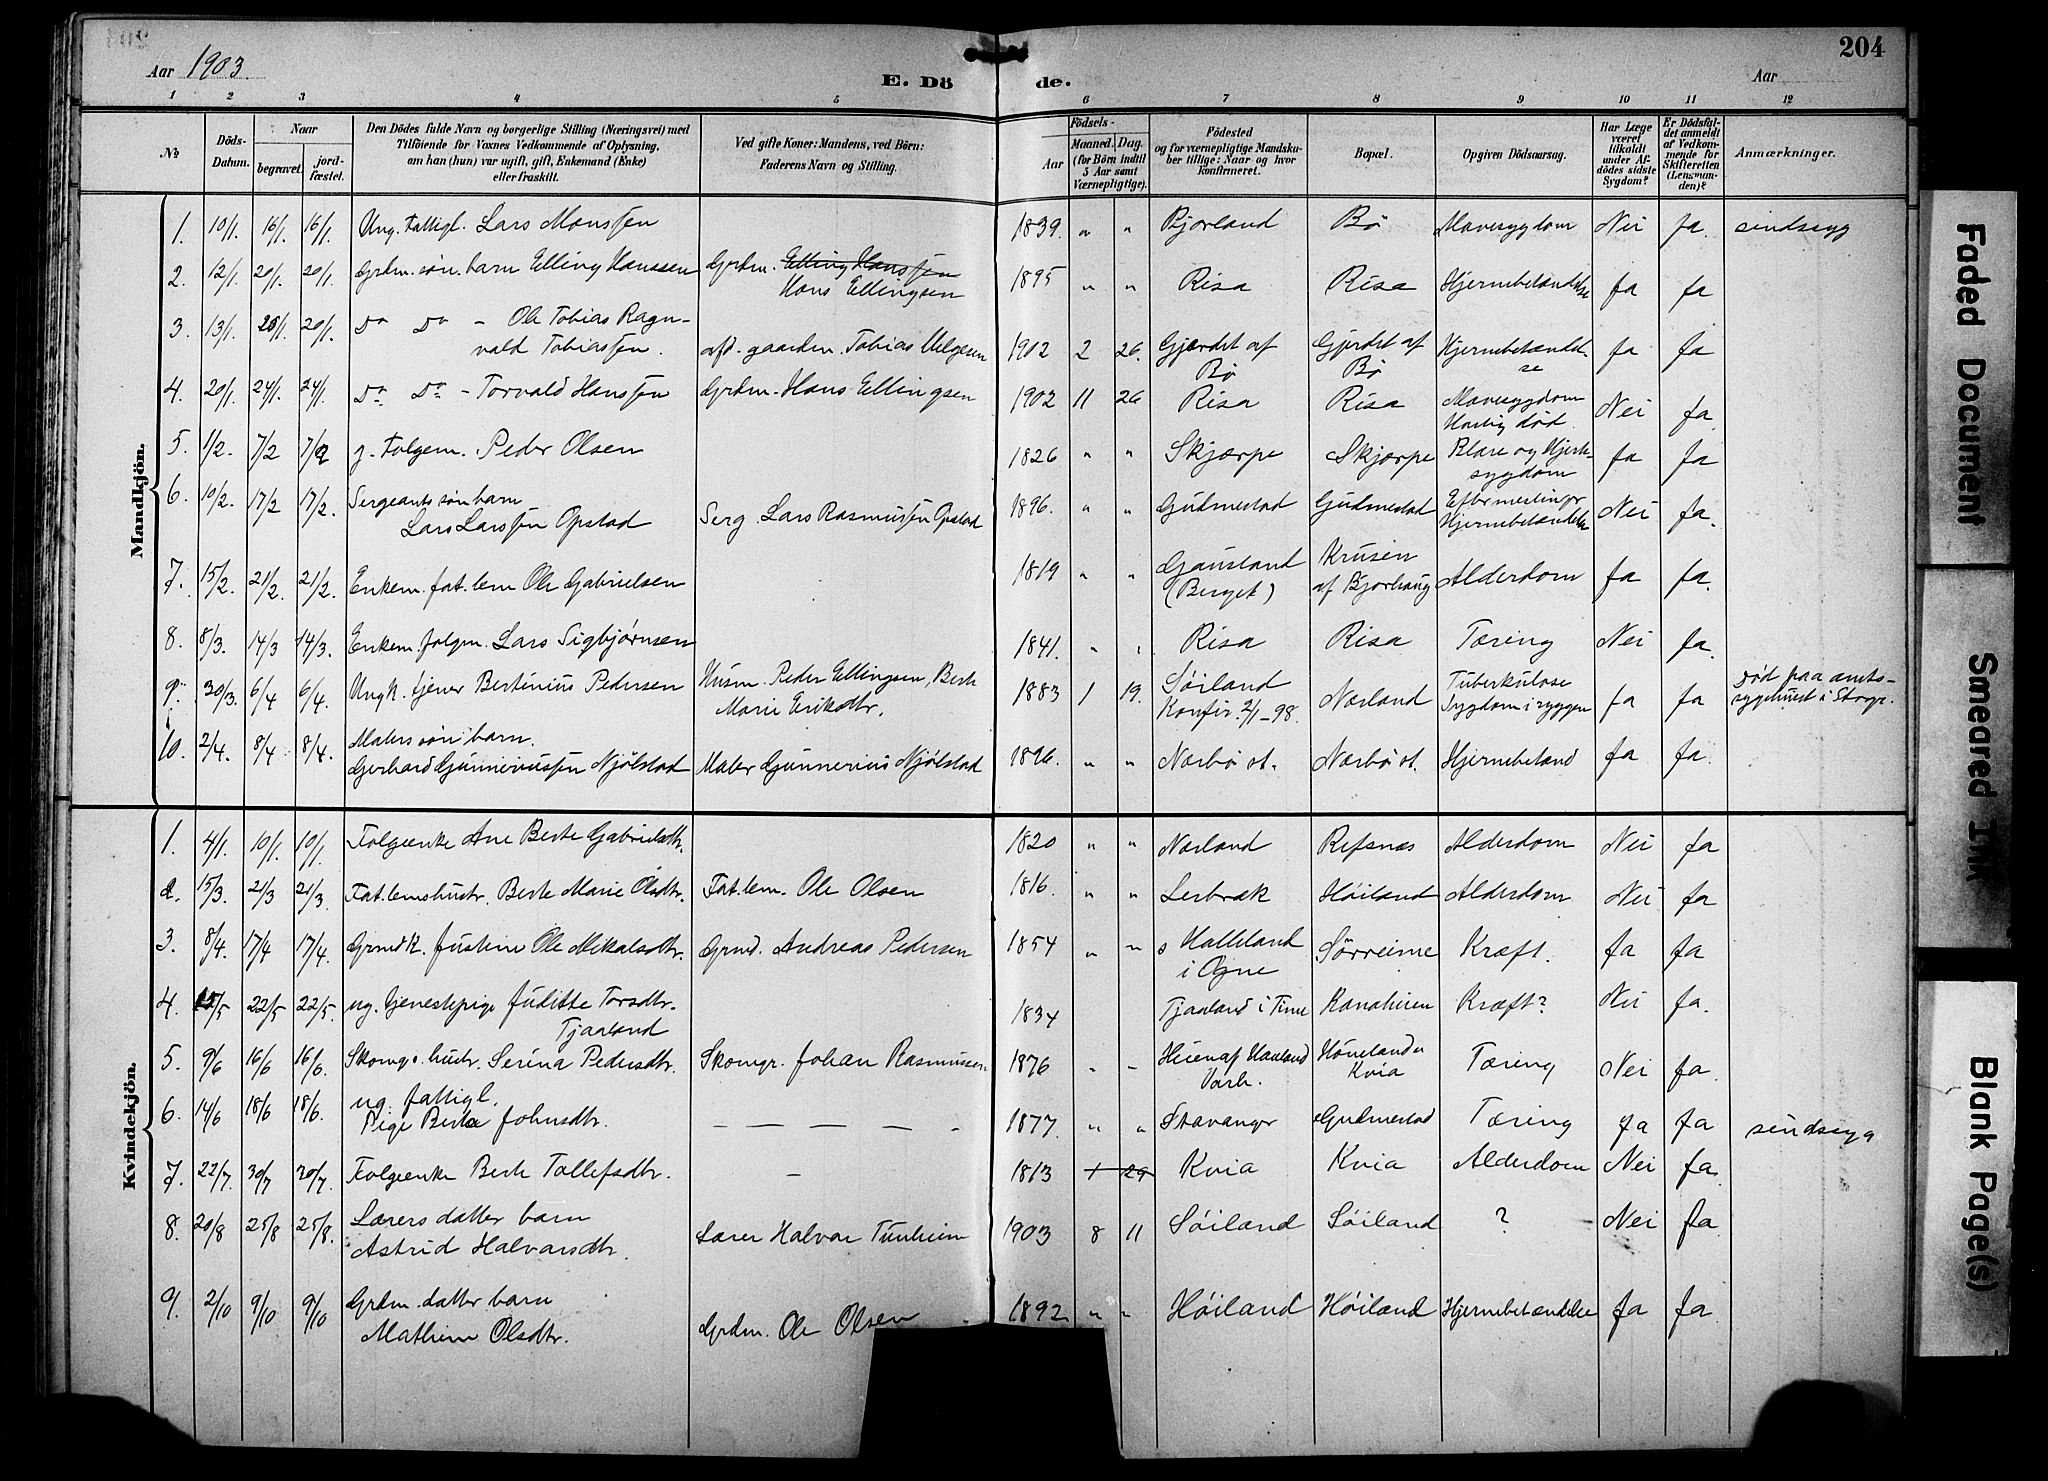 204
Aar 1903.
E. Döde.
Aar
1 2 3 4 5 6 7 8 9 10 11 12
No
Döds-Datum.
Naar
begravet.
jord-fæstet.
Den Dödes fulde Navn og borgerlige Stilling (Næringsvei) med
Tilföiende for Voxnes Vedkommende af Oplysning,
om han (hun) var ugift, gift, Enkemand (Enke)
eller fraskilt.
Ved gifte Koner: Mandens, ved Börn:
Faderens Navn og Stilling.
Födsels-
Aar
Maaned. Dag.
(for Börn indtil
5 Aar samt
Værnepligtige).
Födested
og for værnepligtige Mandsku-
ber tillige: Naar og hvor
konfirmeret.
Bopæl.
Opgiven Dödsaarsag.
Har Læge
været
tilkaldt
under Af-
dödes sidste
Sygdom?
Er Dödsfal-
det anmeldt
af Vedkom-
mende for
Skifteretten
(Lensman-
den)?
Anmærkninger.
Mandkjön.
1. 10/1. 16/1. 16/1. Ung. fattigl. Lars Monssen 1839. " " Bjorland Bö Mavesygdom Nei Ja. sindssyg
2. 12/1. 20/1. 20/1. Grdm. søn. barn Elling Hanssen Grdm. Elling Hanssen
Hans Ellingsen 1895 " " Risa Risa Hjernebetændelse Ja Ja
3. 13/1. 20/1. 20/1. Do Do - Ole Tobias Ragn-
vald Tobiassen. afd. gaardm. Tobias Helgesen 1902 2 26. Gjærdet af Bö Gjerdet af Bö Hjernebetændelse Ja Ja
4. 20/1. 24/1. 24/1. Do Do - Torvald Hanssen Grdm. Hans Ellingsen 1902 11 26 Risa Risa Mavesygdom
Hastig död. Nei Ja.
5. 1/2. 7/2 7/2 g. Folgem. Peder Olsen 1826 " " Skjærpe Skjærpe Blære og Hjerte-
sygdom Ja Ja
6. 10/2. 17/2 17/2. Sergeants søn barn
Lars Larssen Opstad Serg. Lars Rasmussen Opstad 1896. " " Gudmestad Gudmestad Hjernebetændelse Nei Ja.
7. 15/2. 21/2. 21/2. Enkem. fat. lem Ole Gabrielsen 1819 " " Gausland
(Berget) Krusen
af Bjorhaug Alderdom Ja Ja.
8. 8/3. 14/3 14/3. Enkem. folgm. Lars Sigbjørnsen 1841. " " Risa Risa Tæring Nei Ja.
9. 30/3. 6/4 6/4. Ungk. tjener Bertinius Pedersen Husm. Peder Ellingsen, Berte
Marie Eriksdtr. 1883 1 19. Søiland
Konfir. 2/1-98. Nærland Tuberkuløse
Sygdom i ryggen Ja Ja død paa amts-
sygehuset i Stvgr.
10. 2/4. 8/4 8/4. Malers søn barn.
Gerhard Gunneriussen Njølstad Maler Gunnerius Njølstad 1896. " " Nærbö st. Nærbö st. Hjernebetænd Ja Ja.
Kvindekjön.
1. 4/1. 10/1. 10/1. Folgeenke Ane Berte Gabrielsdtr. 1820 " " Nærland Refsnæs Alderdom Nei Ja
2. 15/3. 21/3 21/3. Fat. lemshustr. Berte Marie Olsdtr. Fat. lem. Ole Olsen 1816. " " Lerbræk Høiland Alderdom Nei Ja
3. 8/4. 17/4 17/4. Grmdk. Justine Ole Mikalsdtr. Grmd. Andreas Pedersen 1854 " " Halleland
i Ogne Sörreime Kræft. Ja Ja
4. 15/5 22/5 22/5. ug. tjenestepige Juditte Torsdtr.
Tjaaland 1834 Tjaaland i Time Kræft? Nei Ja.
5. 9/6 16/6 16/6. Skomgr. hustr. Serina Pedersdtr. Skomgr. Johan Rasmussen 1876 " " Varh. Kvia Tæring Nei Ja.
6. 14/6 18/6 18/6. ug. fattigl.
Pige Berta Johnsdtr. — — — — 1877. " " Stavanger Gudmestad Tæring Ja Ja sindssyg
7. 22/7. 30/7 30/7. Folgeenke Berte Tollefsdtr. — 1813 1 29 Kvia Kvia Alderdom Nei Ja.
8. 20/8 25/8 25/8. Lærers datter barn
Astrid Halvarsdtr. Lærer Halvar Tunheim 1903 8 11 Søiland Søiland ? Nei Ja.
9. 2/10 9/10 9/10 Grdm. datter barn
Mathine Olsdtr. Grdm. Ole Olsen 1892 " " Høiland Høiland Hjernebetændelse Ja Ja
Faded Document
Smeared Ink
Blank Page(s)